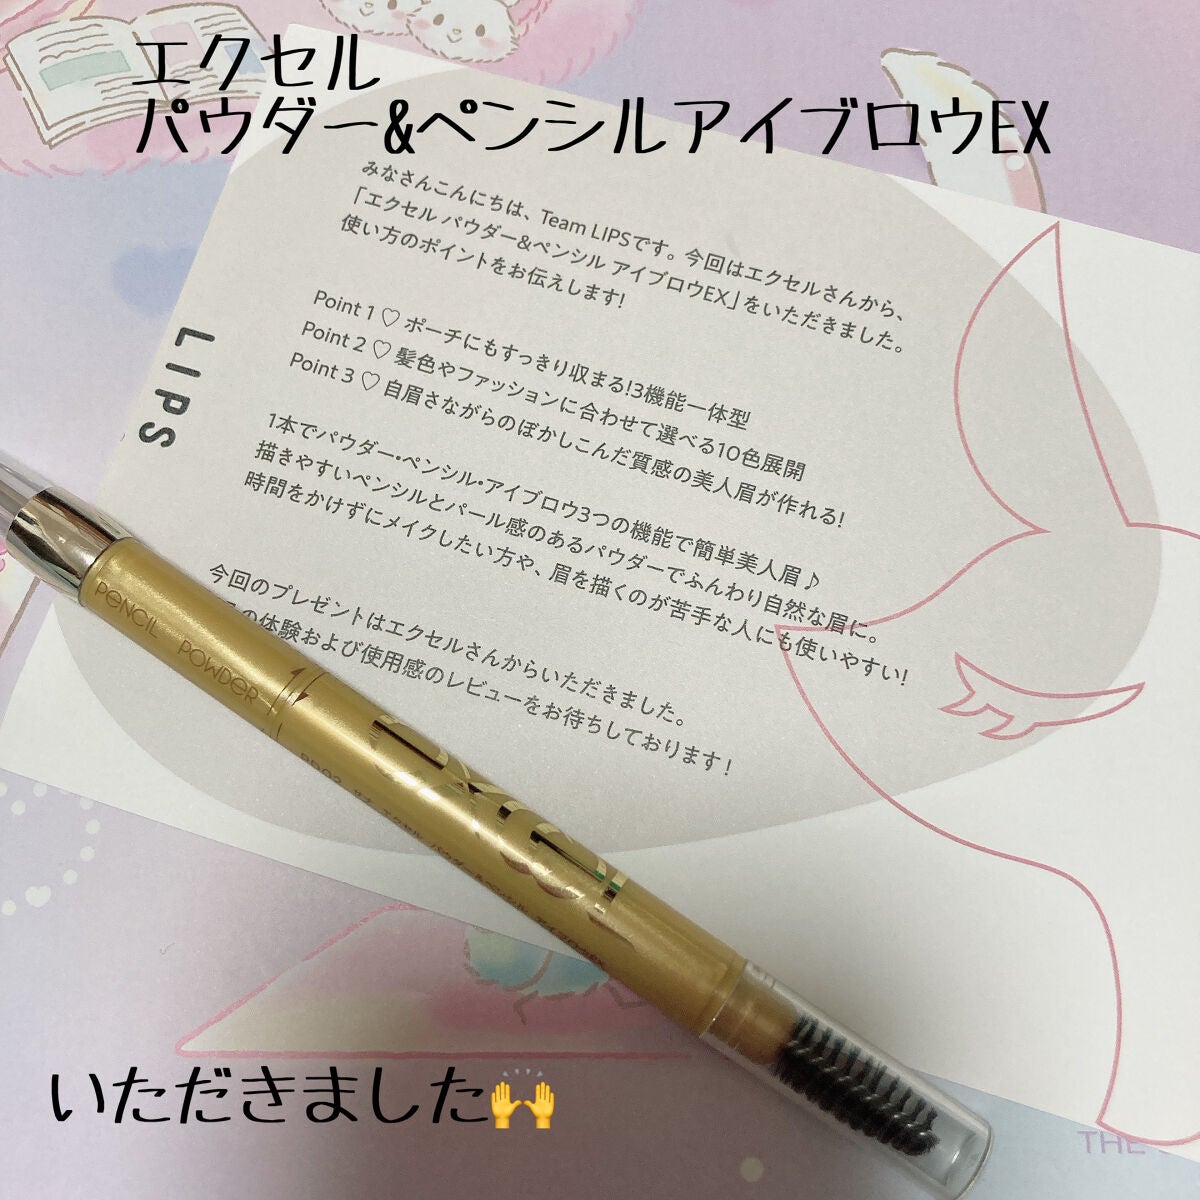 エクセル
パウダー&ペンシルアイブロウEX
みなさんこんにちは、Team LIPSです。今回はエクセルさんから、
「エクセル パウダー&ペンシル アイブロウEX」をいただきました。
使い方のポイントをお伝えします!
Point 1 ♡ ポーチにもすっきり収まる!3機能一体型
Point 2 ♡ 髪色やファッションに合わせて選べる10色展開
Point 3 ♡ 自眉さながらのぼかしこんだ質感の美人眉が作れる!
1本でパウダー・ペンシル・アイブロウ3つの機能で簡単美人眉♪
描きやすいペンシルとパール感のあるパウダーでふんわり自然な眉に。
時間をかけずにメイクしたい方や、眉を描くのが苦手な人にも使いやすい!
今回のプレゼントはエクセルさんからいただきました。
の体験および使用感のレビューをお待ちしております!
LIPS
PENCIL POWDER
サナ エクセル パウダー&ペンシル アイブロウEX
excel
いただきました🙌
THE